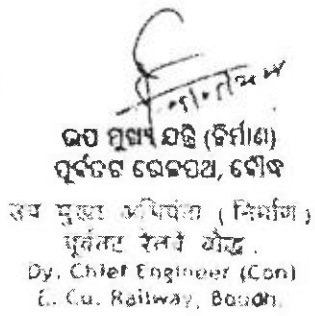 ଉପ ମୁଖ୍ୟ ଯନ୍ତ୍ରୀ (ନିର୍ମାଣ)
ପୂର୍ବତଟ ରେଳପଥ, ବୌଦ୍ଧ
उप मुख्य अभियंता (निर्माण)
पूर्वतट रेलवे बौद्ध.
Dy. Chief Engineer (Con)
E. Co. Railway, Boudh.